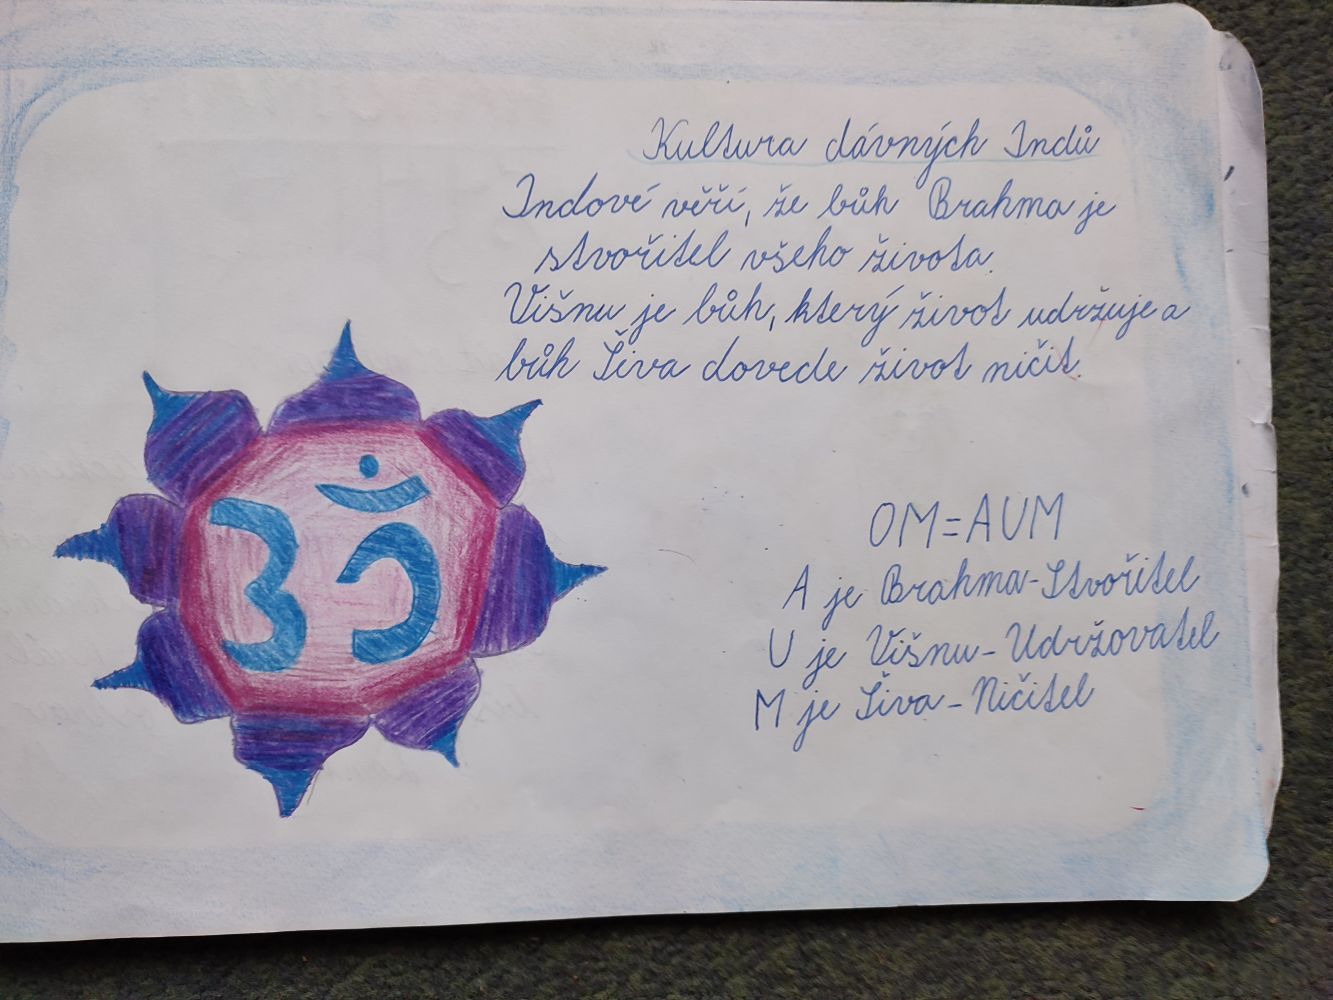 Kultura dávných Indů
Indové věří, že bůh Brahma je
stvořitel všeho života.
Višnu je bůh, který život udržuje a
bůh Šiva dovede život ničit.
ॐ
OM=AUM
A je Brahma-Stvořitel
U je Višnu-Udržovatel
M je Šiva-Ničitel